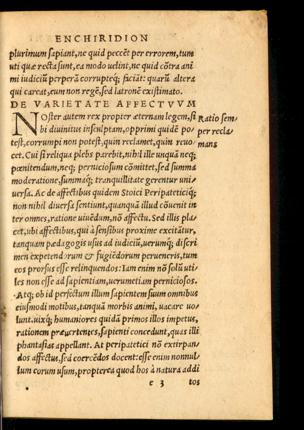 ENCHIRIDION
plurimum sapiant, ne quid peccẽt per errorem, tum
uti quæ recta sunt, ea modo uelint, ne quid cõtra ani
mi iudiciũ perperã corrupteq; faciãt: quarũ altera
qui careat, eum non regẽ, sed latronẽ existimato.
DE VARIETATE AFFECTVVM
Noster autem rex propter æternam legem, si
bi diuinitus insculptam, opprimi quidẽ po
test, corrumpi non potest, quin reclamet, quin reuo
cet. Cui si reliqua plebs parebit, nihil ille unquã neq;
pœnitendum, neq; perniciosum cõmittet, sed summa
moderatione, summaq; tranquillitate gerentur uni/
uersa. Ac de affectibus quidem Stoici Peripateticiq;
non nihil diuersa sentiunt, quanquã illud cõuenit in
ter omnes, ratione uiuẽdum, nõ affectu. Sed illis pla/
cet, ubi affectibus, qui à sensibus proxime excitãtur,
tanquam pædagogis usus ad iudiciũ, uerumq; discri
men expetendorum & fugiẽdorum perueneris, tum
eos prorsus esse relinquendos: Iam enim nõ solũ uti/
les non esse ad sapientiam, uerumetiam perniciosos.
Atq; ob id perfectum illum sapientem suum omnibus
eiusmodi motibus, tanquã morbis animi, uacare uo/
lunt. uixq; humaniores quidã primos illos impetus,
rationem præuertentes, sapienti concedunt, quas illi
phantasias appellant. At peripatetici nõ extirpan/
dos affectus, sed coercẽdos docent: esse enim nonnul
lum eorum usum, propterea quod hos à natura addi
e 3 tos
Ratio sem/
per recla/
mans